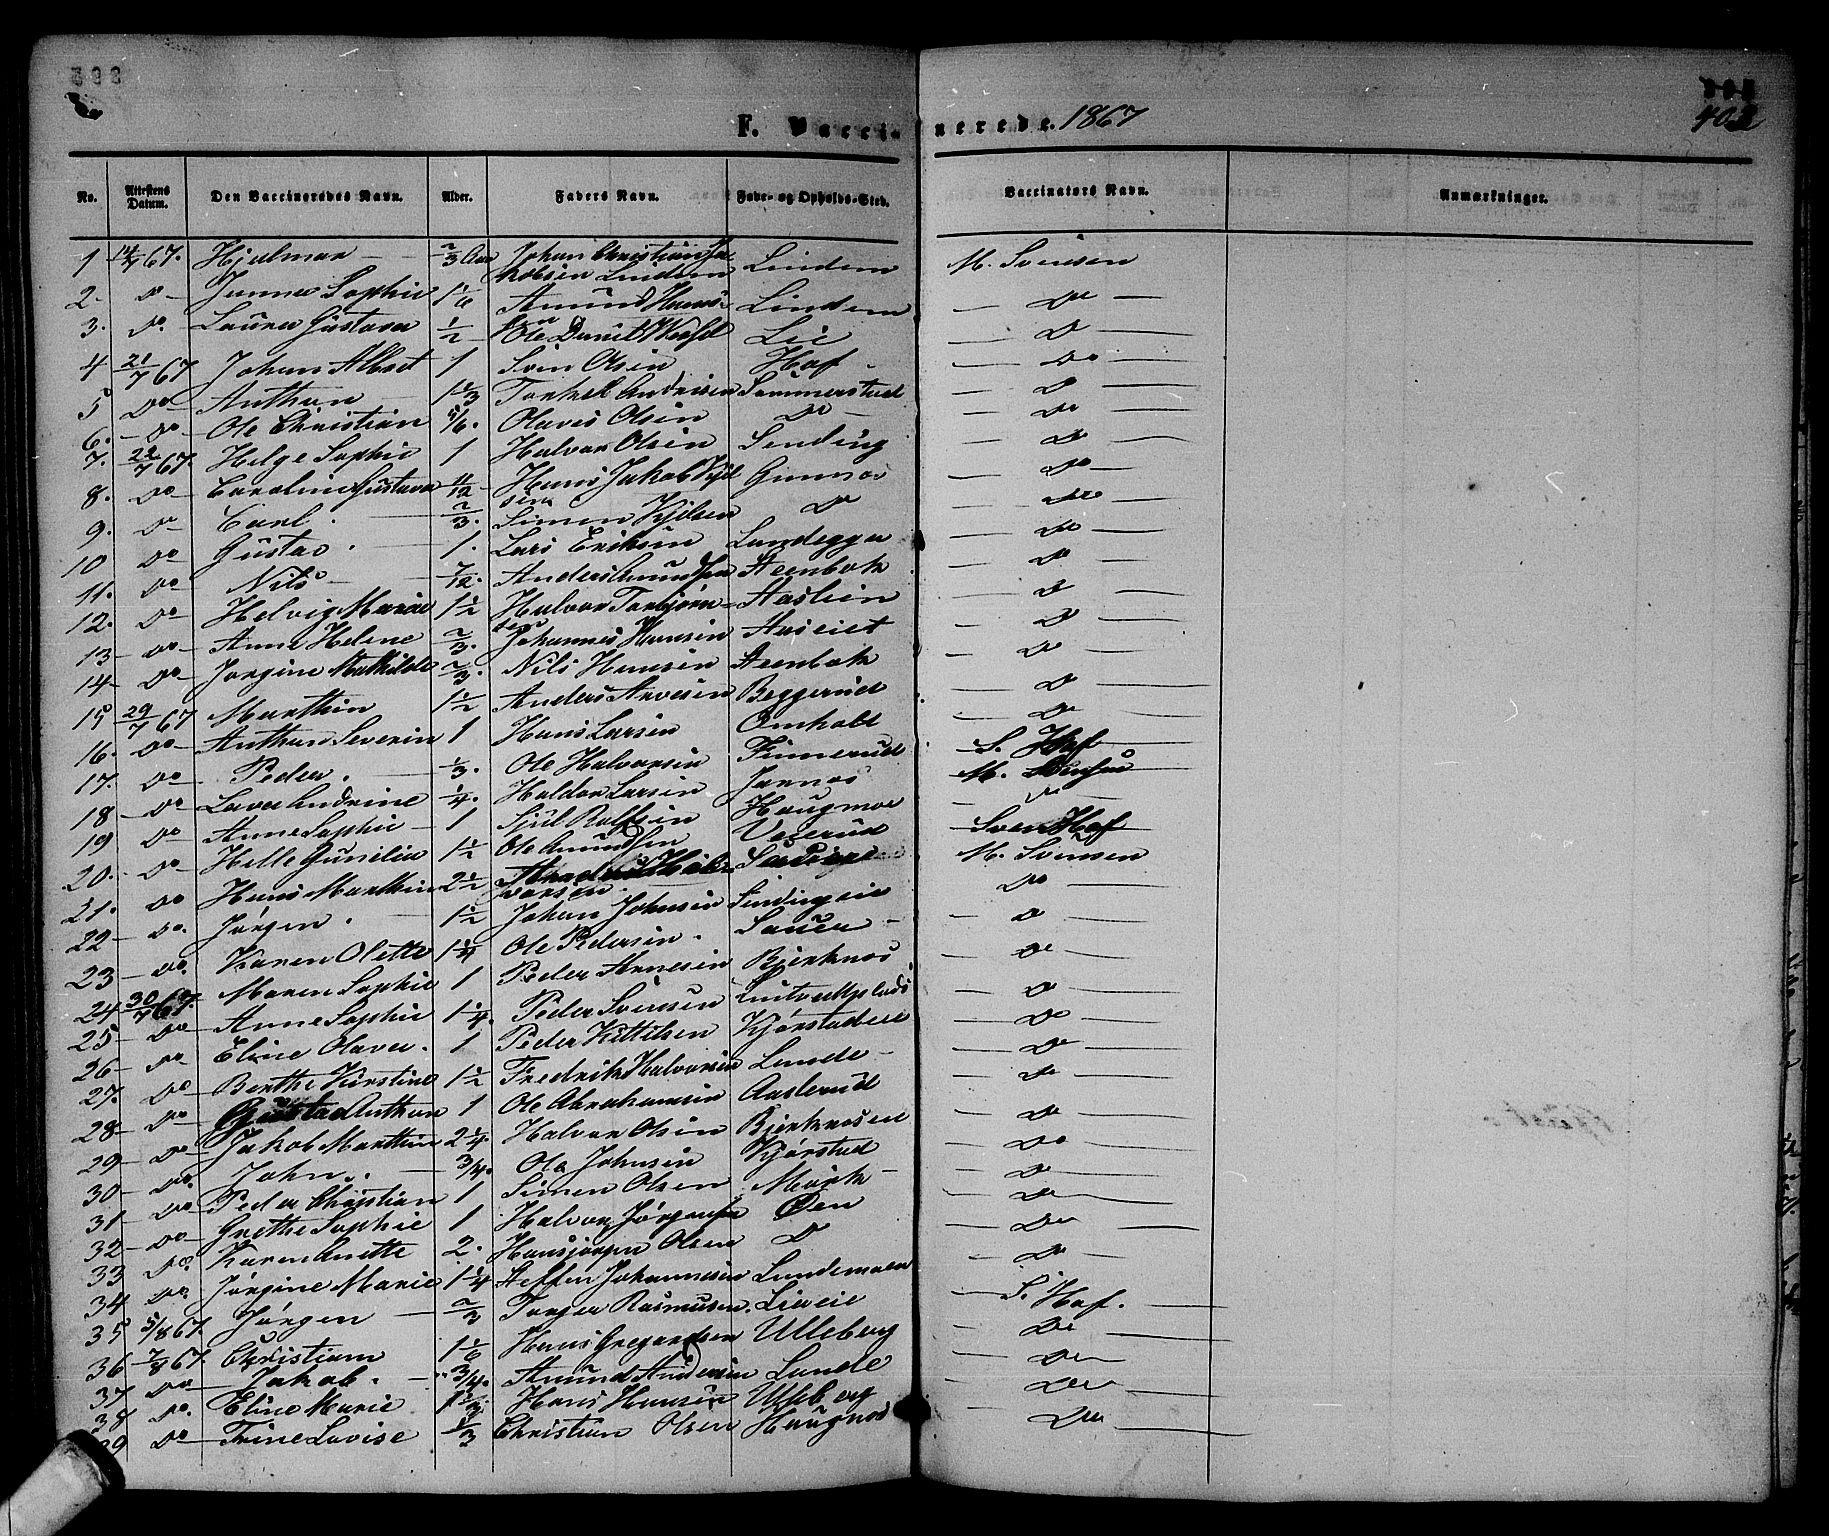 F. Vaccinerede. 1867
402
No. Attestens Datum. Den Vaccineredes Navn. Alder. Faders Navn. Føde- og Opholds-Sted. Vaccinators Navn. Anmærkninger.
1 14/7 67. Hjalmar 2/3 Aar Johan Christian Jakobsen Lindem Lindem M. Svensen
2 Do Sophie 1 1/6 Amund Hans- Lindem Do
3. Do Laura Gustava 1/2 Ole Daniel Lie Do
4 21/7 67 Johan Albert 1 Sven Olsen Hof Do
5 Do Anthon 1 1/3 Torkel Andersen Sommerstad Do
6. Do Ole Christian 5/6. Olaves Olsen Do Do
7. 22/7 67. Helge Sophie 1 Halvor Olsen Sending Do
8. Do Caroline Gustava 11/12 Hans Jakob Kjelsen Gunnes Do
9. Do Carl 2/3. Simen Kjelsen Do Do
10 Do Gustav 1. Lars Eriksen Lundegger Do
11. Do Nils 7/12. Anders Amundsen Steenbok Do
12. Do Helvig Maria 1 1/2 Halvor Torbjørnsen Haslien Do
13 Do Anne Helene 2/3. Johannes Hansen Do
14 Do Jørgine Mathilde 2/3. Nils Hansen Steenbok Do
15 29/7 67 Marthin 1 1/2 Anders Arvesen Beggerud Do
16. Do Anthon Severin 1 Hans Larsen Omholt Do
17. Do Peder. 1/3. Ole Halvorsen Finnerud S. Hof
18 Do Laura Andrine 1/4. Haldor Larsen Jarnes M. Svensen
19 Do Anne Sophie 1 Sjul Rolfsen Haugmoe Do
20. Do Helle Gunilia 1 1/2 Ole Amundsen Valerud Sven Hof
21. Do Hans Marthin 2 1/2 M. Svensen
22 Do. Jørgen. 1 1/2 Johan Johnsen Sindingeie Do
23 Do. Karen Olette 1 1/4 Ole Pedersen. Sauer Do
24 30/7 67. Maren Sophie 1 Peder Arnesen Bjerknes Do
25 Do Anne Sophie 1 1/4. Peder Svensen Do
26 Do Eline Olava. 1 Peder Kittilsen Kjørstadeie Do
27. Do Berthe Kirstine 1 1/2 Fredrik Halvorsen Lunde Do
28 Do Gustav Anthon 1 Ole Abrahamsen Aaslerud Do
29 Do Jakob Marthin 2 1/4 Halvor Olsen Bjerknesen Do
30 Do. John. 3/4. Ole Johnsen Kjørstad Do
31 Do Peder Christian 1 Simen Olsen Mørk Do
32 Do Grethe Sophie 1 Halvor Jørgensen Øen Do
33 Do. Karen Anette 2. Hansjørgen Olsen Do Do
34 Do. Jørgine Marie 1 1/4 Steffen Johannesen Lundemoen Do
35 5/8 67. Jørgen 2/3 Torger Rasmusen. Lieeie S. Hof.
36 7/8 67. Christian 1 1/6 Hans Gregersen Ulleberg Do
37 Do Jakob. 3/4. Amund Andersen Lunde Do
38 Do. Eline Marie 1 1/3 Hans Hansen Ulleberg Do
39 Do Trine Lovise 1/3 Christian Olsen Haugnes Do